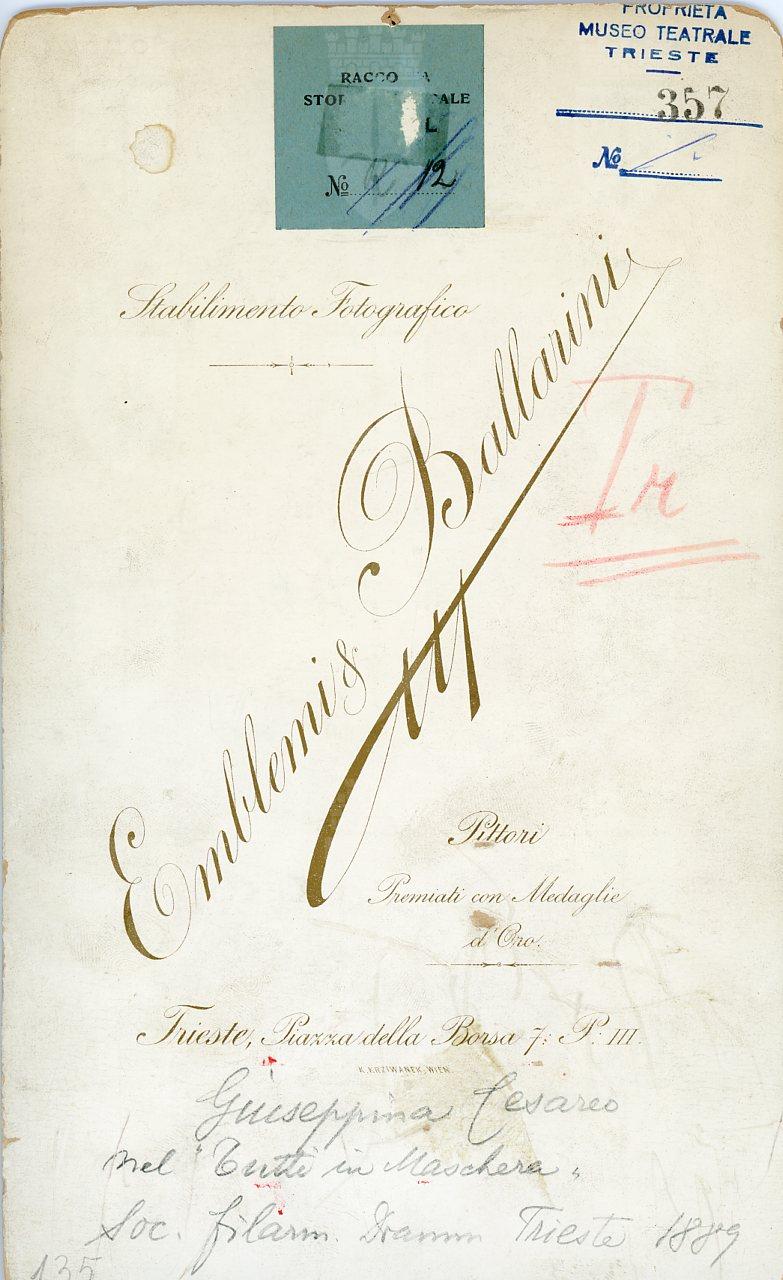 PROPRIETÀ
MUSEO TEATRALE
TRIESTE
357
No
RACCO A
STOR CALE
L
No 12
Stabilimento Fotografico
Emblemi & Ballarini
Pittori
Premiati con Medaglie
d'Oro.
Trieste, Piazza della Borsa 7: P. III.
K. KRZIWANEK, WIEN
Giuseppina Cesareo
nel "Tutti in Maschera"
Soc. filarm. Dramm Trieste 1889
135